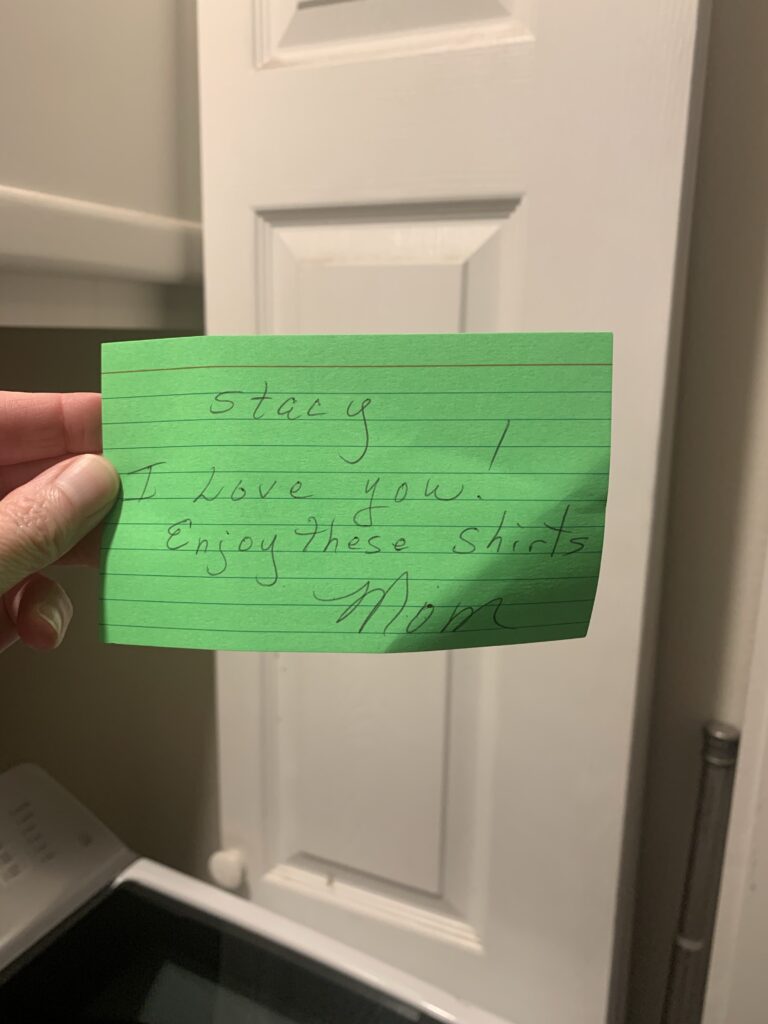 Stacy
I Love you!
Enjoy these shirts
Mom